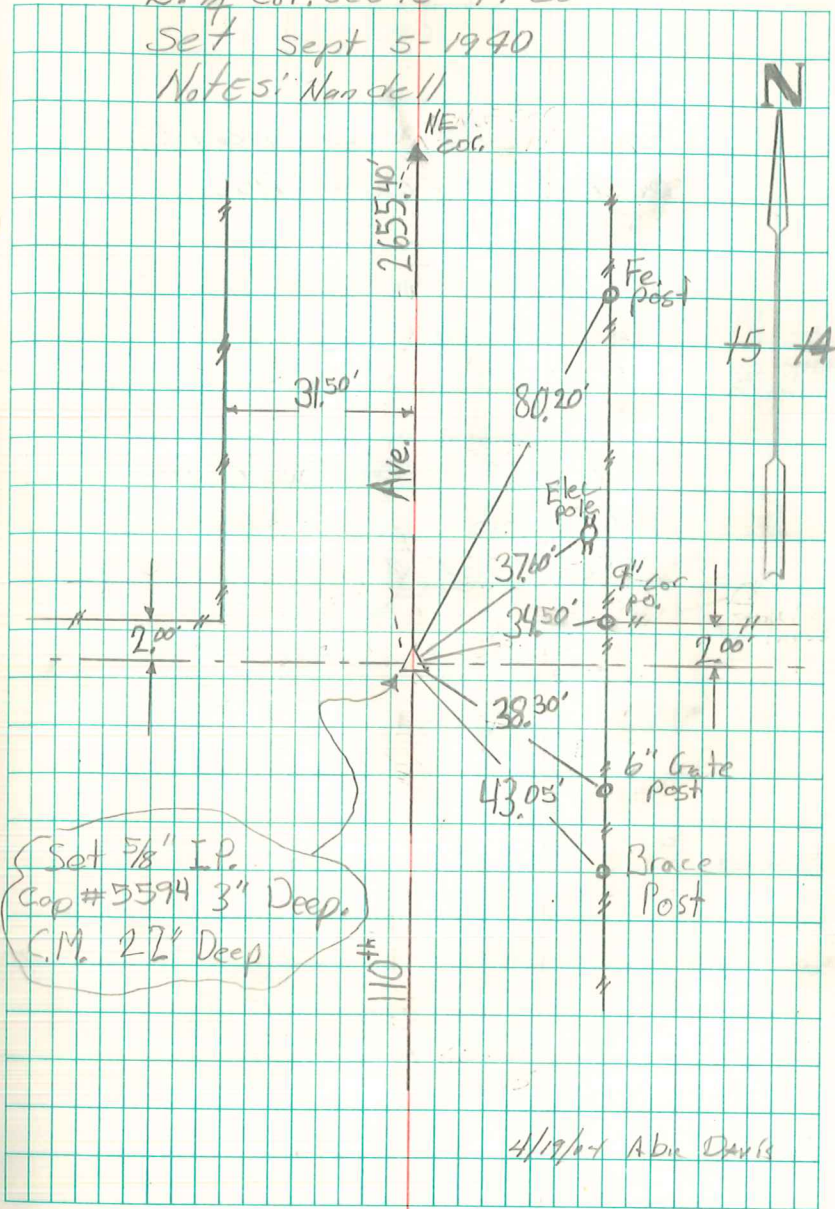 Set Sept 5-1940
Notes: Nandell
N
NE
cor.
2655.40'
Fe.
post
15 14
31.50'
80.20'
Ave.
Elec
pole
37.60'
9" Cor
po.
34.50'
2.00'
2.00'
38.30'
6" Gate
Post
43.05'
Brace
Post
Set 5/8" I.P.
Cap #5594 3" Deep.
C.M. 22" Deep
110th
4/19/04 Davis